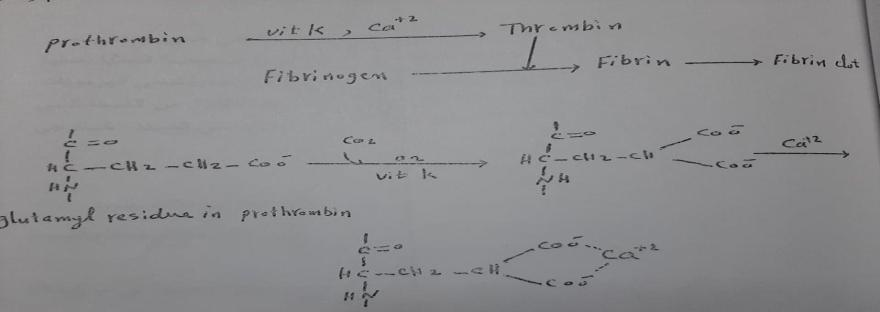 prothrombin vit k , Ca+2 Thrombin
Fibrinogen Fibrin Fibrin clot
C=O
HC-CH2-CH2-COO- CO2 O2 vit k HC-CH2-CH COO- COO- Ca+2
HN
C=O
NH
glutamyl residue in prothrombin
C=O
HC-CH2-CH COO- COO- Ca+2
HN